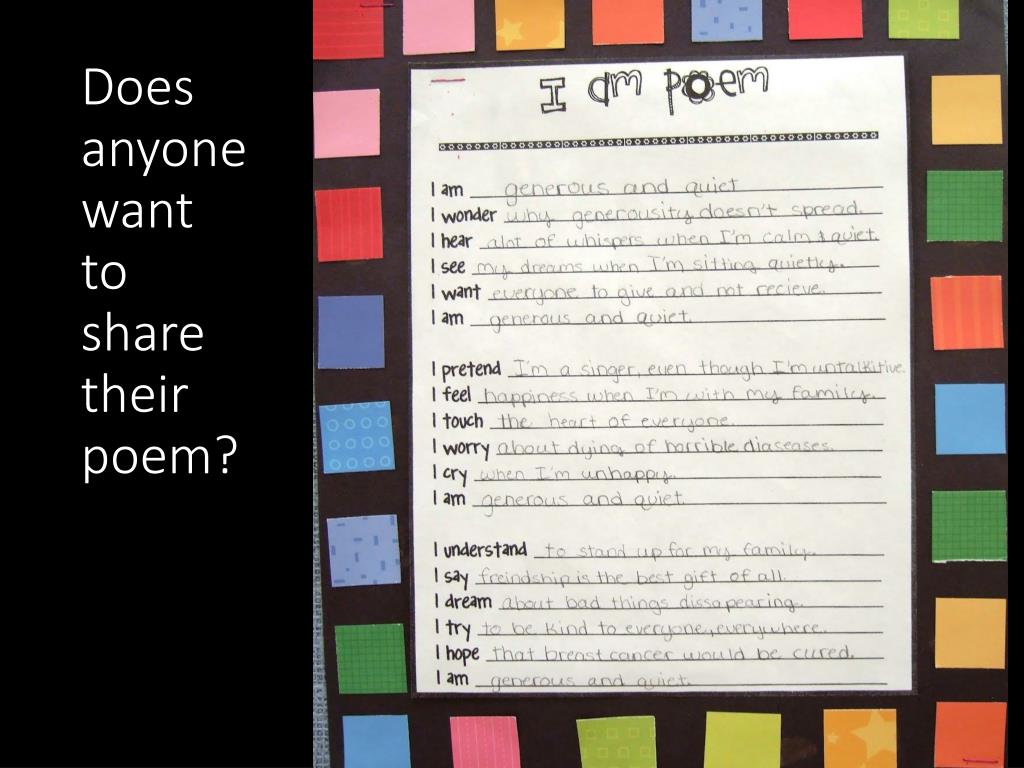 Does
anyone
want
to
share
their
poem?
I am poem
I am generous and quiet
I wonder why generousity doesn't spread.
I hear alot of whispers when I'm calm & quiet.
I see my dreams when I'm sitting quietly.
I want everyone to give and not recieve.
I am generous and quiet.
I pretend I'm a singer, even though I'm
I feel happiness when I'm with my family.
I touch the heart of everyone.
I worry about dying of horrible diaseases.
I cry when I'm unhappy.
I am generous and quiet
I understand to stand up for my family.
I say freindship is the best gift of all.
I dream about bad things dissapearing.
I try to be kind to everyone, everywhere.
I hope that breast cancer would be cured.
I am generous and quiet.